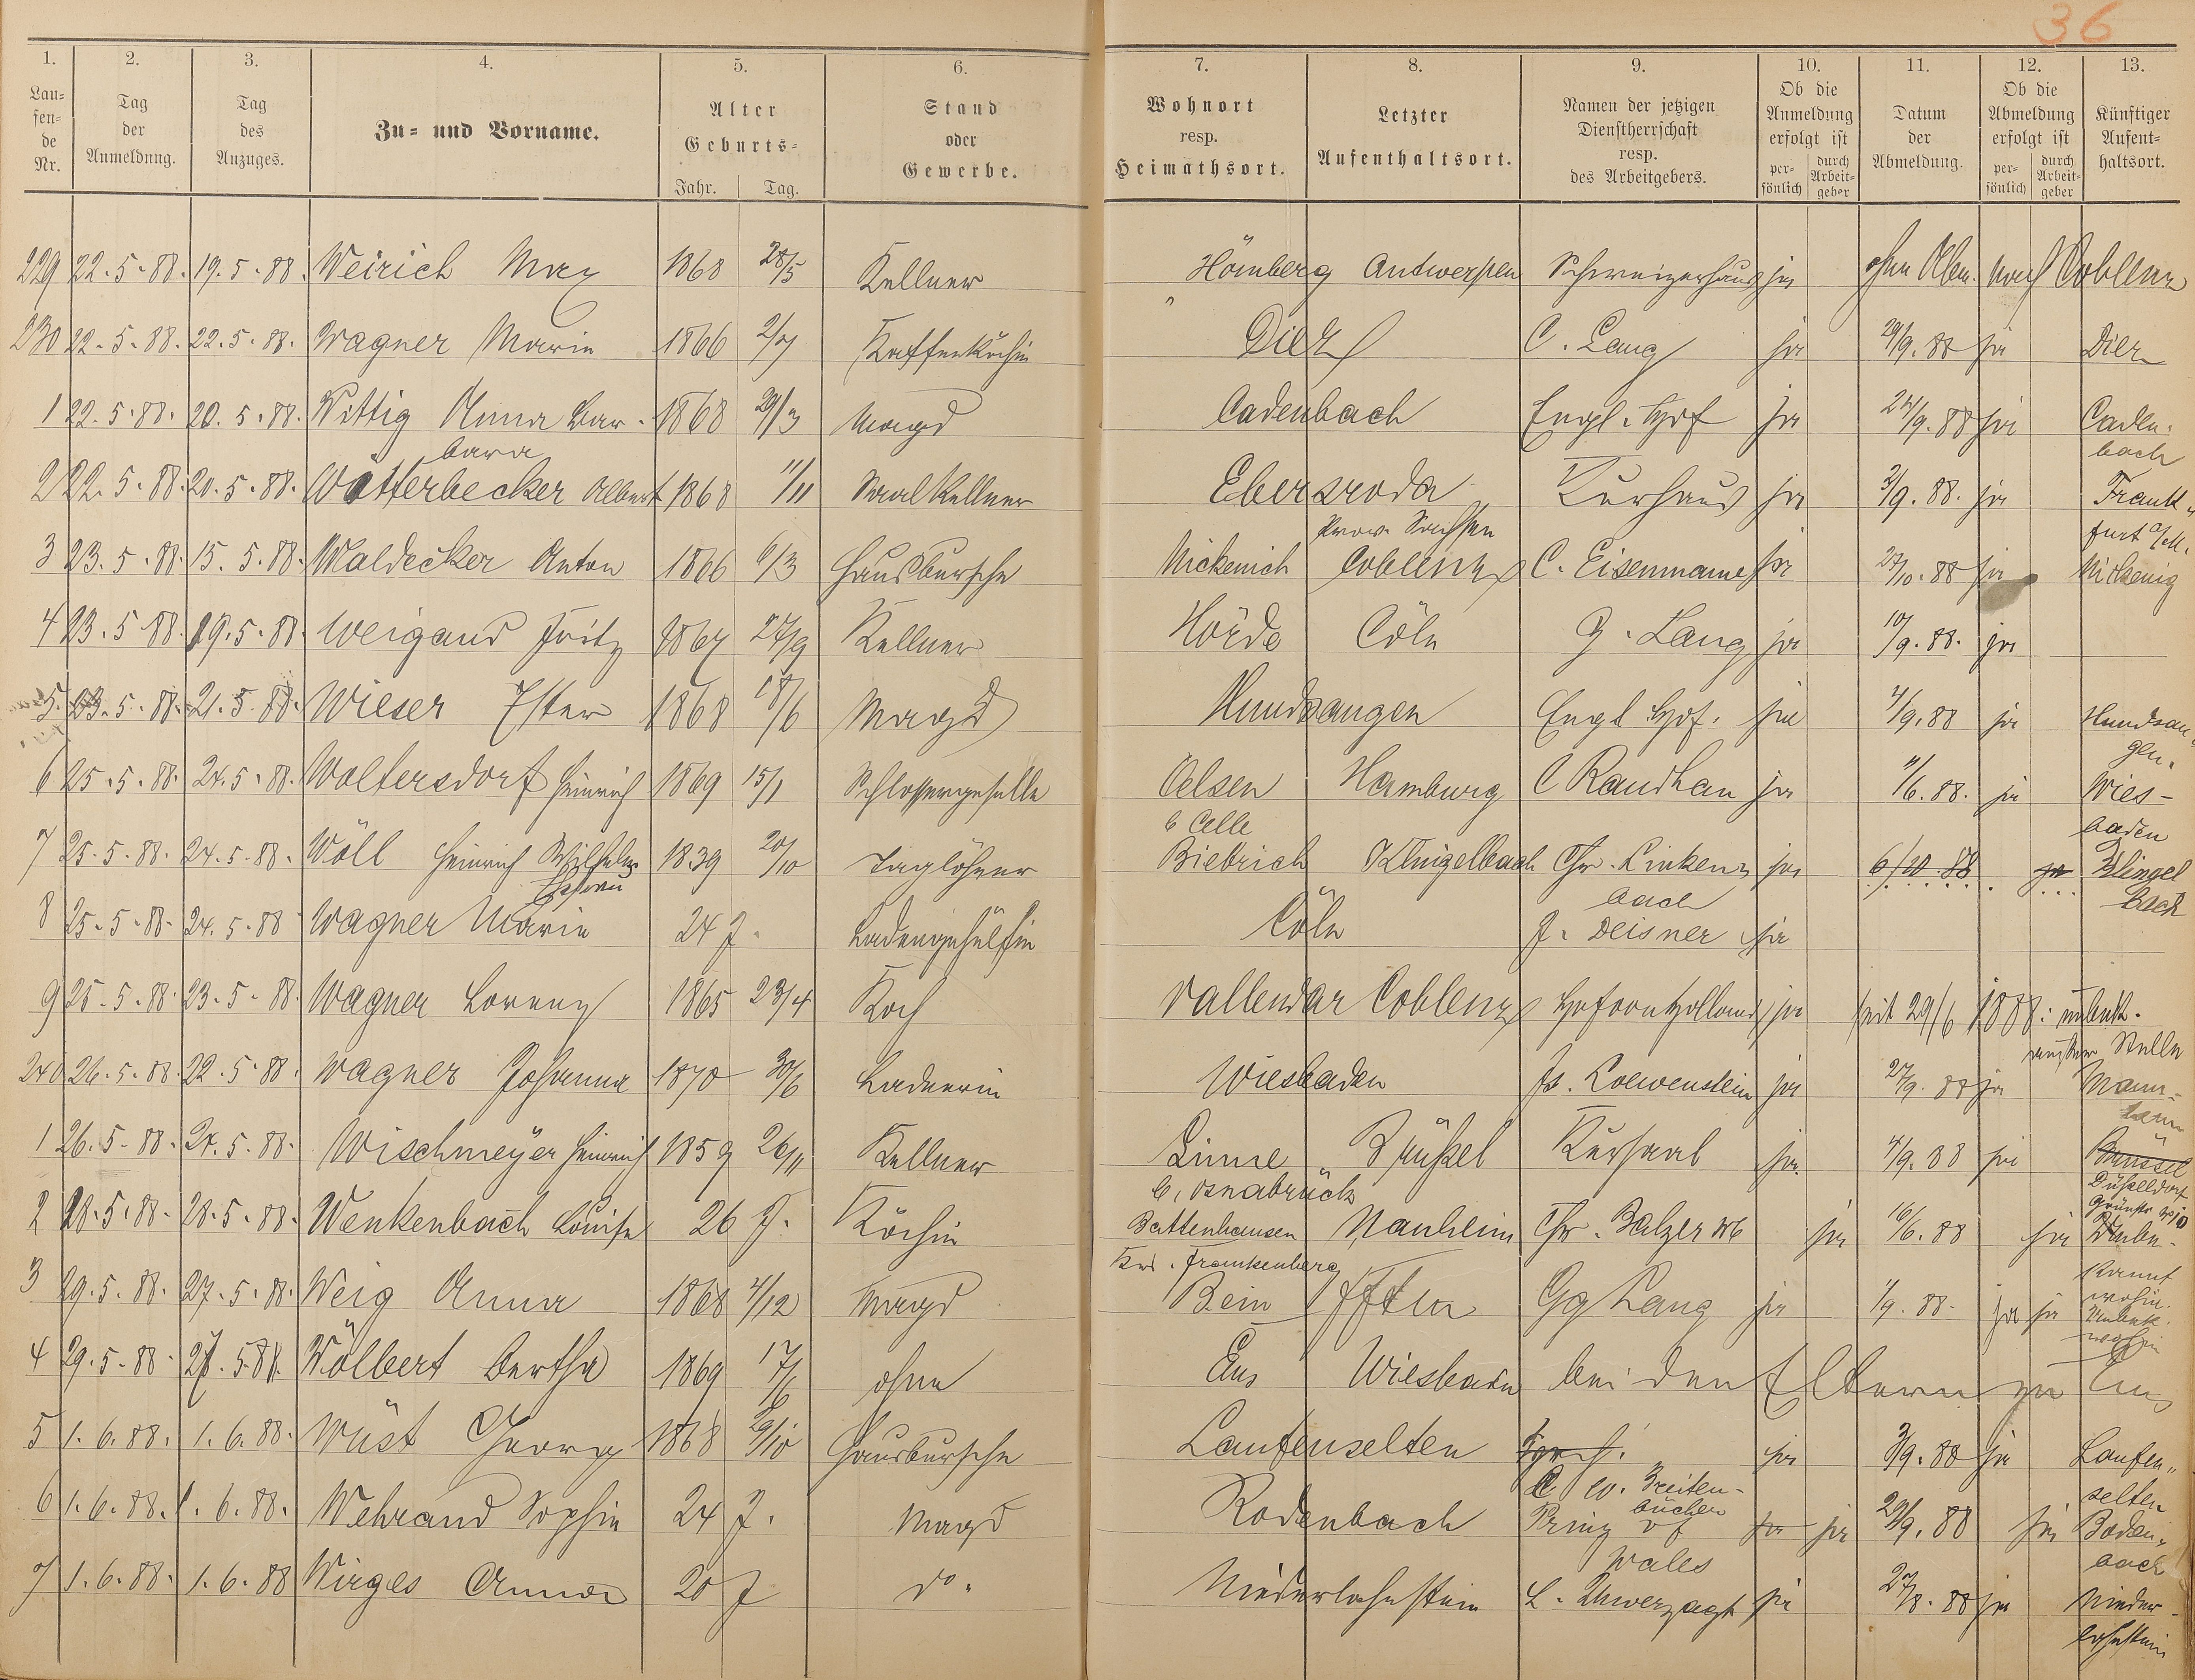 36
1. 2. 3. 4. 5. 6. 7. 8. 9. 10. 11. 12. 13.
Lau=fen=de Nr. Tag der Anmeldung. Tag des Anzuges. Zu= und Vorname. Alter Geburts= Jahr. Tag. Stand oder Gewerbe. Wohnort resp. Heimathsort. Letzter Aufenthaltsort. Namen der jetzigen Dienstherrschaft resp. des Arbeitgebers. Ob die Anmeldung erfolgt ist per=sönlich durch Arbeit=geber Datum der Abmeldung. Ob die Abmeldung erfolgt ist per=sönlich durch Arbeit=geber Künftiger Aufent=haltsort.
229 22.5.88. 19.5.88. Weirich Max 1868 28/5 Kellner Hömberg Antwerpen Schweizerhaus ja ohne Abm. nach Coblenz
230 22.5.88. 22.5.88. Wagner Marie 1866 2/7 Kaffeeköchin Diez C. Lang ja 29/9.88 ja Diez
1 22.5.88. 20.5.88. Wittig Anna Bar- 1868 29/3 Magd Cadenbach Engl. Hof ja 24/9.88 ja Caden-
bara bach
2 22.5.88. 20.5.88. Wötterbecker Albert 1868 11/11 Saalkellner Ebersroda Kurhaus ja 3/9.88. ja Frank-
Prov. Sachsen furt a/M.
3 23.5.88. 15.5.88. Waldecker Anton 1866 6/3 Hausbursche Nickenich Coblenz C. Eisenmann ja 27/10.88 ja Nickenig
4 23.5.88. 19.5.88. Weigand Fritz 1867 27/9 Kellner Hörde Cöln G. Lang ja 10/9.88. ja
5. 23.5.88. 21.5.88. Wieser Ester 1868 18/6 Magd Hundsangen Engl Hof. ja 4/9.88 ja Hundsan-
gen.
6 25.5.88. 24.5.88. Woltersdorf Heinrich 1869 15/1 Schlossergeselle Oelsen Hamburg C Raudhan ja 11/6.88. ja Wies-
b Celle baden
7 25.5.88. 24.5.88. Wöll Heinrich Wilhelm 1839 20/10 Taglöhner Biebrich Klingelbach Chr. Linken ja 6/10 88 ja Klingel
Ehefrau bach bach
8 25.5.88. 24.5.88 Wagner Marie 24 J. Ladengehülfin Cöln J. Deisner ja
9 25.5.88. 23.5.88. Wagner Lorenz 1865 23/4 Koch Vallendar Coblenz Hof von Holland ja seit 29/6 1888. unbek.
240 26.5.88. 22.5.88. Wagner Johanna 1870 30/6 Ladnerin Wiesbaden Js. Loewenstein ja 27/9.88 ja Mann-
1 26.5.88. 24.5.88. Wischmeyer Heinrich 1859 26/11 Kellner Linne Brüßel Kursaal ja. 4/9.88 ja Brüssel
b. Osnabrück Düsseldorf
2 28.5.88. 28.5.88. Wenkenbach Louise 26 J. Köchin Battenhausen Nauheim Chr. Balzer Wb ja 16/6.88 ja Unbe-
Krs. Frankenberg kannt wohin.
3 29.5.88. 27.5.88. Weig Anna 1868 4/12 Magd Bein Gg Lang ja 1/9.88. ja ja Unbek. wohin
4 29.5.88. 27.5.88. Wölbert Bertha 1869 17/6 ohne Ems Wiesbaden bei den Eltern zu Ems
5 1.6.88. 1.6.88. Wüst Georg 1868 29/10 Hausbursche Laufenselten ja 3/9.88 ja Laufen-
C W. Breiten- selten
bücher
6 1.6.88. 1.6.88. Wehrand Sophie 24 J. Magd Rodenbach Prinz of ja ja 29/9.88 ja Roden-
Wales bach
7 1.6.88. 1.6.88 Wirges Anna 20 J do. Niederlahnstein L. Unverzagt ja 27/8.88 ja Nieder-
lahnstein